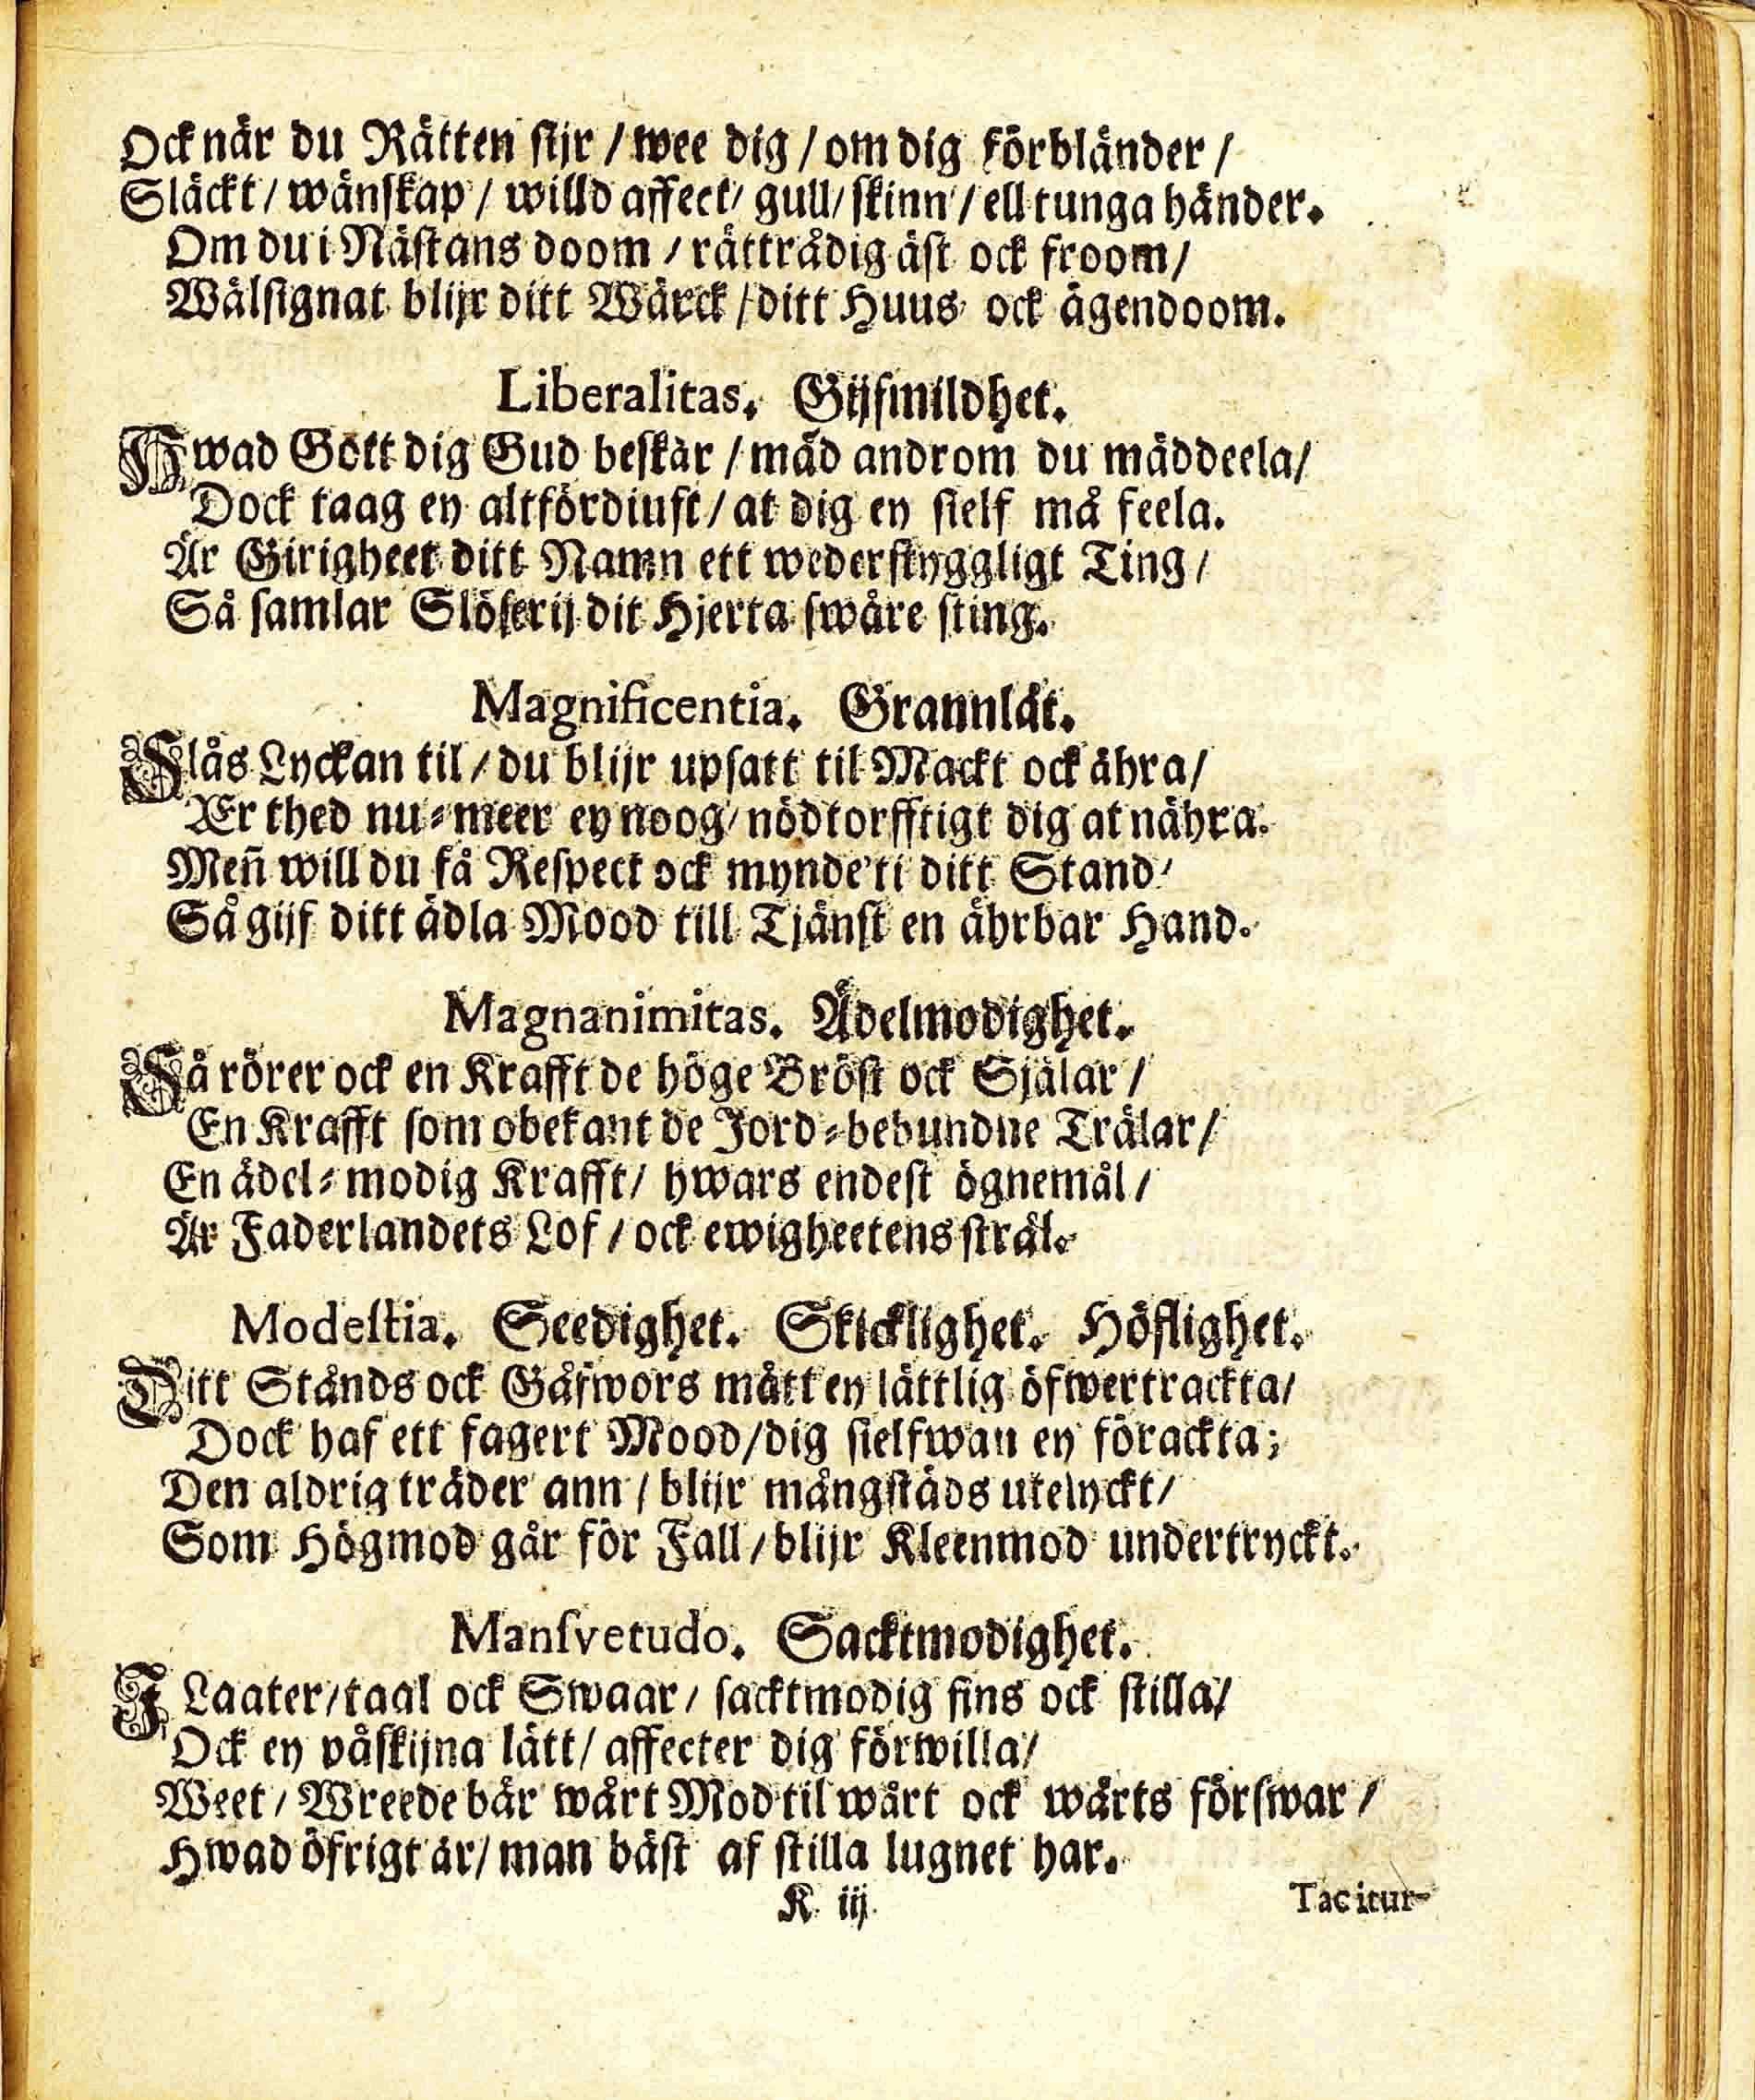 Ock när du Rätten stjr / wee dig / om dig förbländer /
Släckt / wänskap / willd affect / gull / skinn / ell tunga händer.
Om du i Nästans doom / rättrådig äst ock froom /
Wälsignat blijr ditt Wärck / ditt Huus ock ägendoom.
Liberalitas. Gijfmildhet.
Hwad Gott dig Gud beskär / mäd androm du mäddeela /
Dock taag ey altfördiuft / at dig ey sielf må feela.
Är Girigheet ditt Namn ett wederstyggligt Ting /
Så samlar Slöserij dit Hjerta swåre sting.
Magnificentia. Grannlåt.
Slås Lyckan til / du blijr upsatt til Mackt ock ähra /
Er thed nu-meer ey noog / nödtorfftigt dig at nähra.
Men̄ will du få Respect ock mynde't i ditt Stand /
Så gijf ditt ädla Mood till Tjänst en ährbar Hand.
Magnanimitas. Ädelmodighet.
Så rörer ock en Krafft de höge Bröst ock Själar /
En Krafft som obekant de Jord-bebundne Trälar /
En ädel-modig Krafft / hwars endest ögnemål /
Är Faderlandets Lof / ock ewigheetens strål.
Modestia. Seedighet. Skicklighet. Höflighet.
Ditt Stånds ock Gåfwors mått ey lättlig öfwertrackta /
Dock haf ett fagert Mood / dig sielfwan ey förackta;
Den aldrig träder ann / blijr mångstäds utelyckt /
Som Högmod går för Fall / blijr Kleenmod undertryckt.
Mansvetudo. Sacktmodighet.
I Laater / taal ock Swaar / sacktmodig fins ock stilla /
Ock ey påskijna lätt / affecter dig förwilla /
Weet / Wreede bär wårt Mod til wårt ock wårts förswar /
Hwad öfrigt är / man bäst af stilla lugnet har.
K iij
Tacitur-